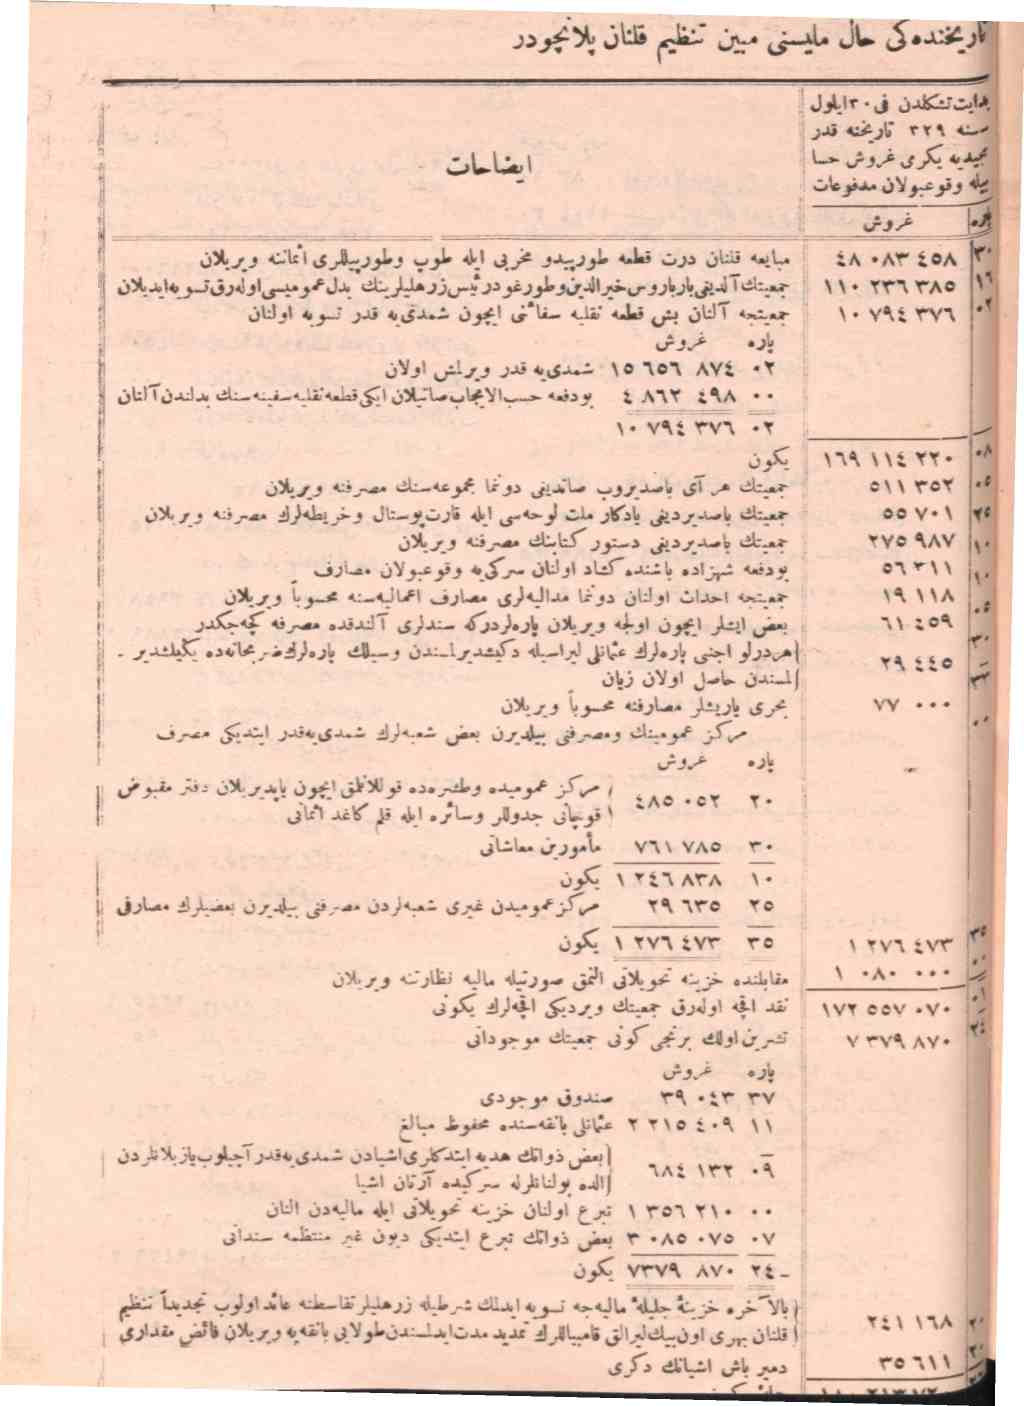 تاريخنده‌كى حال ماليسنى مبين تنظيم قلنان پلانچودر
بدايت تشكلدن فى ٣٠ ايلول
سنه ٣٢٩ تاريخنه قدر
مجيديه يكرمى غروش حسا
بيله وقوعبولان مدفوعات
ايضاحات
پاره غروش
٣٠ ٤٨ ٠٨٣ ٤٥٨ مبايعه قلنان درت قطعه طورپيدو مخربى ايله طوپ وطورپيللرى اثماننه ويريلان
١٦ ١١٠ ٢٣٦ ٣٨٥ جمعيتك آلدينى بارباروس خيرالدين وطورغود رئيس زرهليلرينك بدل عموميسى اوله‌رق تسويه ايديلان
٠٢ ١٠ ٧٩٤ ٣٧٦ جمعيتجه آلنان بش قطعه نقليه سفائنى ايچون شمدى‌يه قدر تسويه اولنان
پاره غروش
٠٢ ١٥ ٦٥٦ ٨٧٤ شمدى‌يه قدر ويرلمش اولان
٠٠ ٤ ٨٦٢ ٤٩٨ بودفعه حسب الايجاب صاتيلان ايكى قطعه نقليه سفينه‌سنك بدلندن آلنان
٠٢ ١٠ ٧٩٤ ٣٧٦
٠٨ ١٦٩ ١١٤ ٢٢٠ يكون
٠٥ ٥١١ ٣٥٢ جمعيتك هر آى باصديروب صاتدينى دونما مجموعه‌سنك مصرفنه ويريلان
٢٥ ٥٥ ٧٠١ جمعيتك باصديردينى يادكار ملت لوحه‌سى ايله قارت پوستال وخريطه‌لرك مصرفنه ويريلان
١٠ ٢٧٥ ٩٨٧ جمعيتك باصديردينى دستور كتابنك مصرفنه ويريلان
١٠ ٥٦ ٣١١ بودفعه شهزاده باشنده كشاد اولنان سركى‌يه وقوعبولان مصارف
٠٥ ١٩ ١١٨ جمعيتجه احداث اولنان دونما مداليه‌لرى مصارف اعماليه‌سنه محسوباً ويريلان
٣٠ ٦١ ٤٥٩ بعض ايشلر ايچون اولجه ويريلان پاره‌لردركه سندلرى آلندقده مصرفه كچه‌جكدر
٣٣ ٢٩ ٤٤٥ هر درلو اجنبى پاره‌لرك عثمانلى ليراسيله دكيشديرلمسندن وسيليك پاره‌لرك ضربخانه‌ده يكيلشدير
لمسندن حاصل اولان زيان
٠٠ ٧٧ ٠٠٠ بحرى ياريشلر مصارفنه محسوباً ويريلان
مركز عمومينك ومصرفنى بيلديرن بعض شعبه‌لرك شمدى‌يه قدر ايتديكى مصرف
پاره غروش
٢٠ ٤٨٥ ٠٥٢ مركز عموميده وطشره‌ده قوللانلمق ايچون ياپديريلان دفتر مقبوض
قوچانى جدوللر وسائره ايله قلم كاغد اثمانى
٣٠ ٧٦١ ٧٨٥ مأمورين معاشاتى
١٠ ١ ٢٤٦ ٨٣٨ يكون
٢٥ ٢٩ ٦٣٥ مركز عموميدن غيرى شعبه‌لردن مصرفنى بيلديرن بعضيلرك مصارفى
٣٥ ١ ٢٧٦ ٤٧٣ يكون ٣٥ ١ ٢٧٦ ٤٧٣
٠٠ ١ ٠٨٠ ٠٠٠ مقابلنده خزينه تحويلاتى النمق صورتيله ماليه نظارتنه ويريلان
٠١ ١٧٢ ٥٥٧ ٠٧٠ نقد اقچه اوله‌رق جمعيتك ويرديكى اقچه‌لرك يكونى
٢٤ ٧ ٣٧٩ ٨٧٠ تشرين اولك برنجى كونى جمعيتك موجوداتى
پاره غروش
٣٧ ٣٩ ٠٤٣ صندوق موجودى
١١ ٢ ٢١٥ ٤٠٩ عثمانلى بانقه‌سنده محفوظ مبالغ
٠٩ ٦٨٤ ١٣٢ بعض ذواتك هديه ايتدكلرى اشيادن شمدى‌يه قدر آچيلوب يازيلانلردن
الده بولنانلرله سركيده آرتان اشيا
٠٠ ١ ٣٥٦ ٢١٠ تبرع اولنان خزينه تحويلاتى ايله ماليه‌دن النان
٠٧ ٣ ٠٨٥ ٠٧٥ بعض ذواتك تبرع ايتديكى ديون غير منتظمه سنداتى
٢٤ ٧٣٧٩ ٨٧٠ يكون
٢٠ ٢٤١ ١٦٨ بالآخره خزينهٔ جليلهٔ ماليه‌جه تسويه ايدلك شرطيله زرهليلر تقاسطنه عائد اولوب تجديداً تنظيم
قلنان بهرى اون بيك ليرالق قامبياللرك تمديد مدت ايدلمسندن طولايى بانقه‌يه ويريلان فائض مقدارى
٢٠ ٣٥ ٦١١ دمير باش اشيانك دكرى